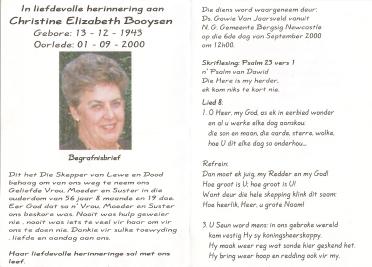 In liefdevolle herinnering aan
Christine Elizabeth Booysen
Gebore: 13 - 12 - 1943
Oorlede: 01 - 09 - 2000
Begrafnisbrief
Dit het Die Skepper van Lewe en Dood
behaag om van ons weg te neem ons
Geliefde Vrou, Moeder en Suster in die
ouderdom van 56 jaar 8 maande en 19 dae.
Eer God dat so n' Vrou, Moeder en Suster
ons beskore was. Nooit was hulp geweier
nie , nooit was iets te veel vir haar om vir
ons te doen nie. Dankie vir sulke toewyding
, liefde en aandag aan ons.
Haar liefdevolle herinneringe sal met ons
leef.
Die diens word waargeneem deur:
Ds. Gawie Van Jaarsveld vanuit
N.G. Gemeente Bergsig Newcastle
op die 6de dag van September 2000
om 12h00.
Skriflesing: Psalm 23 vers 1
n' Psalm van Dawid
Die Here is my herder,
ek kom niks te kort nie.
Lied 8:
1. O Heer, my God, as ek in eerbied wonder
en al u werke elke dag aanskou:
die son en maan, die aarde, sterre, wolke,
hoe U dit elke dag so onderhou...
Refrein:
Dan moet ek juig, my Redder en my God!
Hoe groot is U; hoe groot is U!
Want deur die hele skepping klink dit saam:
Hoe heerlik, Heer, u grote Naam!
3. U Seun word mens: in ons gebroke wêreld
kom vestig Hy sy koningsheerskappy.
Hy maak weer reg wat sonde hier geskend het.
Hy bring weer hoop en redding ook vir my.